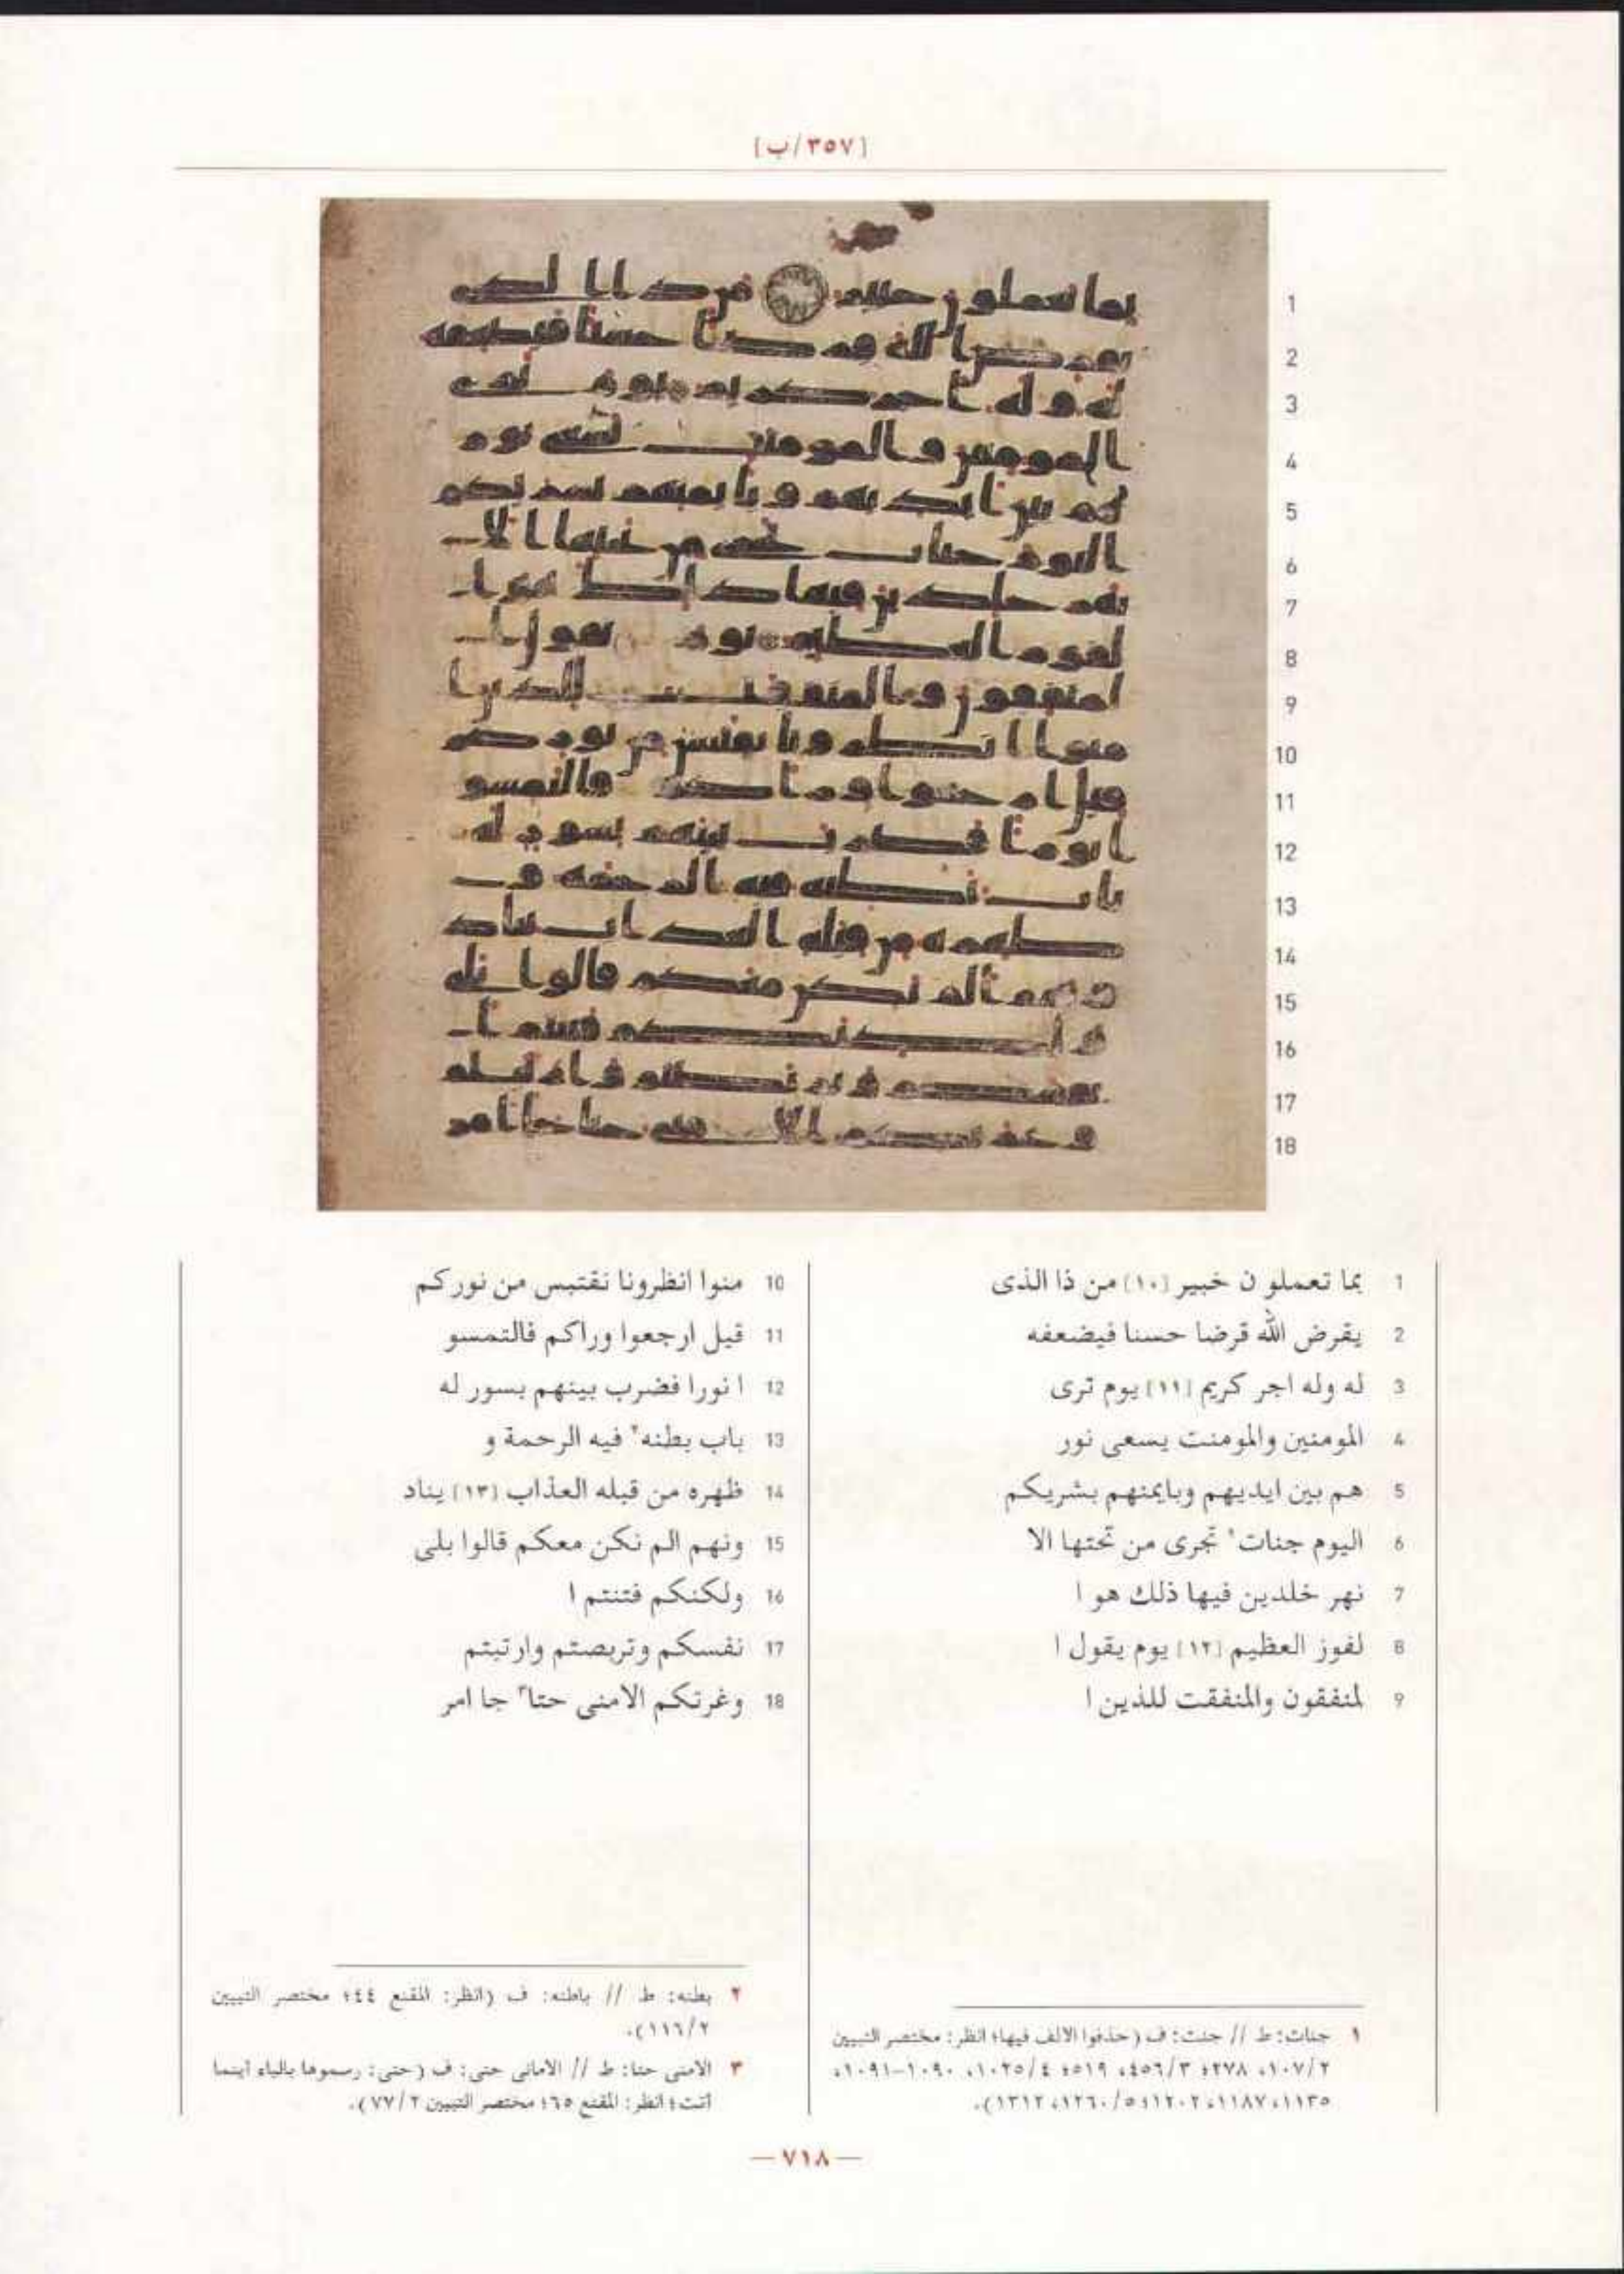 [٣٥٧/ب]
1
2
3
4
5
6
7
8
9
10
11
12
13
14
15
16
17
18
1 بما تعملو ن خبير [١٠] من ذا الذى
2 يقرض الله قرضا حسنا فيضعفه
3 له وله اجر كريم [١١] يوم ترى
4 المومنين والمومنت يسعى نور
5 هم بين ايديهم وبايمنهم بشريكم
6 اليوم جنات١ تجرى من تحتها الا
7 نهر خلدين فيها ذلك هو ا
8 لفوز العظيم [١٢] يوم يقول ا
9 لمنفقون والمنفقت للذين ا
10 منوا انظرونا نقتبس من نوركم
11 قيل ارجعوا وراكم فالتمسو
12 ا نورا فضرب بينهم بسور له
13 باب بطنه٢ فيه الرحمة و
14 ظهره من قبله العذاب [١٣] يناد
15 ونهم الم نكن معكم قالوا بلى
16 ولكنكم فتنتم ا
17 نفسكم وتربصتم وارتبتم
18 وغرتكم الامنى حتا٣ جا امر
١ جنات: ط // جنت: ف (حذفوا الالف فيها؛ انظر: مختصر التبيين
٢/١٠٧، ٢٧٨؛ ٣/٤٥٦، ٥١٩؛ ٤/١٠٢٥، ١٠٩٠-١٠٩١،
١١٣٥، ١١٨٧، ١٢٠٢؛ ٥/١٢٦٠، ١٣١٢).
٢ بطنه: ط // باطنه: ف (انظر: المقنع ٤٤؛ مختصر التبيين
٢/١١٦).
٣ الامنى حتا: ط // الامانى حتى: ف (حتى: رسموها بالياء اينما
اتت؛ انظر: المقنع ٦٥؛ مختصر التبيين ٢/٧٧).
— ٧١٨ —